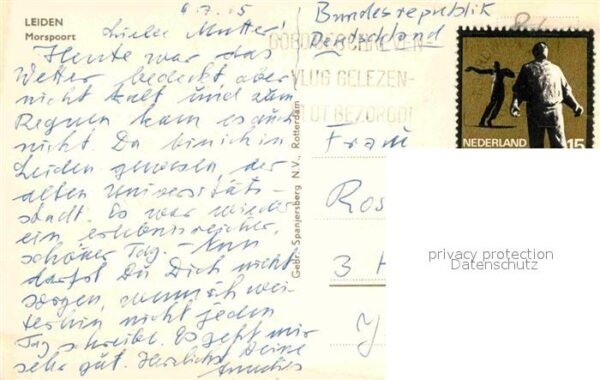 LEIDEN
Morspoort
4.7.65
Liebe Mutter!
Heute war das
Wetter bedeckt aber
nicht kalt und zum
Regnen kam es auch
nicht. Da bin ich in
Leiden gewesen, der
alten Universitäts-
stadt. Es war wieder
ein erlebnisreicher,
schöner Tag. – Nun
darfst Du Dich nicht
sorgen, wenn ich wei-
terhin nicht jeden
Tag schreibe. Es geht mir
sehr gut. Herzlichst Deine
Annelies
Gebr. Spanjersberg N.V., Rotterdam
Bundesrepublik
Deutschland
GOED GESCHREVEN-
VLUG GELEZEN-
VLOT BEZORGD!
NEDERLAND 15
Frau
Ros
3 H
privacy protection
Datenschutz